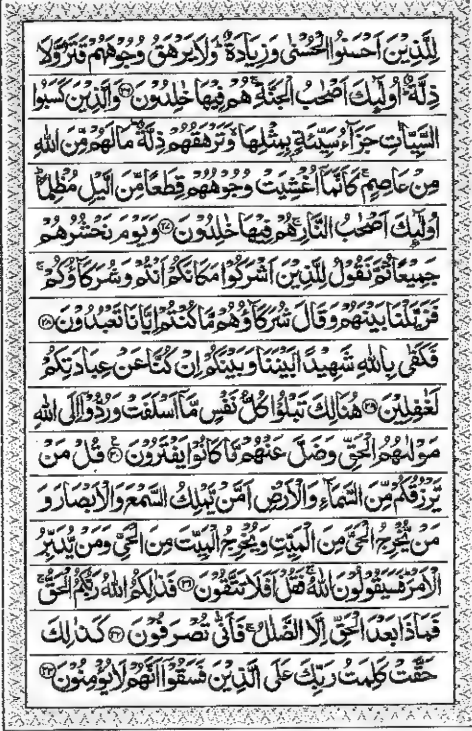 لِلَّذِيْنَ اَحْسَنُوا الْحُسْنٰى وَزِيَادَةٌ ؕ وَلَا يَرْهَقُ وُجُوْهَهُمْ قَتَرٌ وَّلَا
ذِلَّةٌ ؕ اُولٰٓئِكَ اَصْحٰبُ الْجَنَّةِ ۚ هُمْ فِيْهَا خٰلِدُوْنَ ﴿۲۶﴾ وَالَّذِيْنَ كَسَبُوا
السَّيِّاٰتِ جَزَآءُ سَيِّئَةٍۭ بِمِثْلِهَا ۙ وَتَرْهَقُهُمْ ذِلَّةٌ ؕ مَا لَهُمْ مِّنَ اللّٰهِ
مِنْ عَاصِمٍ ۚ كَاَنَّمَاۤ اُغْشِيَتْ وُجُوْهُهُمْ قِطَعًا مِّنَ الَّيْلِ مُظْلِمًا ؕ
اُولٰٓئِكَ اَصْحٰبُ النَّارِ ۚ هُمْ فِيْهَا خٰلِدُوْنَ ﴿۲۷﴾ وَيَوْمَ نَحْشُرُهُمْ
جَمِيْعًا ثُمَّ نَقُوْلُ لِلَّذِيْنَ اَشْرَكُوْا مَكَانَكُمْ اَنْتُمْ وَشُرَكَآؤُكُمْ ۚ
فَزَيَّلْنَا بَيْنَهُمْ وَقَالَ شُرَكَآؤُهُمْ مَّا كُنْتُمْ اِيَّانَا تَعْبُدُوْنَ ﴿۲۸﴾
فَكَفٰى بِاللّٰهِ شَهِيْدًۢا بَيْنَنَا وَبَيْنَكُمْ اِنْ كُنَّا عَنْ عِبَادَتِكُمْ
لَغٰفِلِيْنَ ﴿۲۹﴾ هُنَالِكَ تَبْلُوْا كُلُّ نَفْسٍ مَّاۤ اَسْلَفَتْ وَرُدُّوْۤا اِلَى اللّٰهِ
مَوْلٰىهُمُ الْحَقِّ وَضَلَّ عَنْهُمْ مَّا كَانُوْا يَفْتَرُوْنَ ﴿۳۰﴾ قُلْ مَنْ
يَّرْزُقُكُمْ مِّنَ السَّمَآءِ وَالْاَرْضِ اَمَّنْ يَّمْلِكُ السَّمْعَ وَالْاَبْصَارَ وَ
مَنْ يُّخْرِجُ الْحَيَّ مِنَ الْمَيِّتِ وَيُخْرِجُ الْمَيِّتَ مِنَ الْحَيِّ وَمَنْ يُّدَبِّرُ
الْاَمْرَ ؕ فَسَيَقُوْلُوْنَ اللّٰهُ ۚ فَقُلْ اَفَلَا تَتَّقُوْنَ ﴿۳۱﴾ فَذٰلِكُمُ اللّٰهُ رَبُّكُمُ الْحَقُّ ۚ
فَمَاذَا بَعْدَ الْحَقِّ اِلَّا الضَّلٰلُ ۚ فَاَنّٰى تُصْرَفُوْنَ ﴿۳۲﴾ كَذٰلِكَ
حَقَّتْ كَلِمَتُ رَبِّكَ عَلَى الَّذِيْنَ فَسَقُوْۤا اَنَّهُمْ لَا يُؤْمِنُوْنَ ﴿۳۳﴾